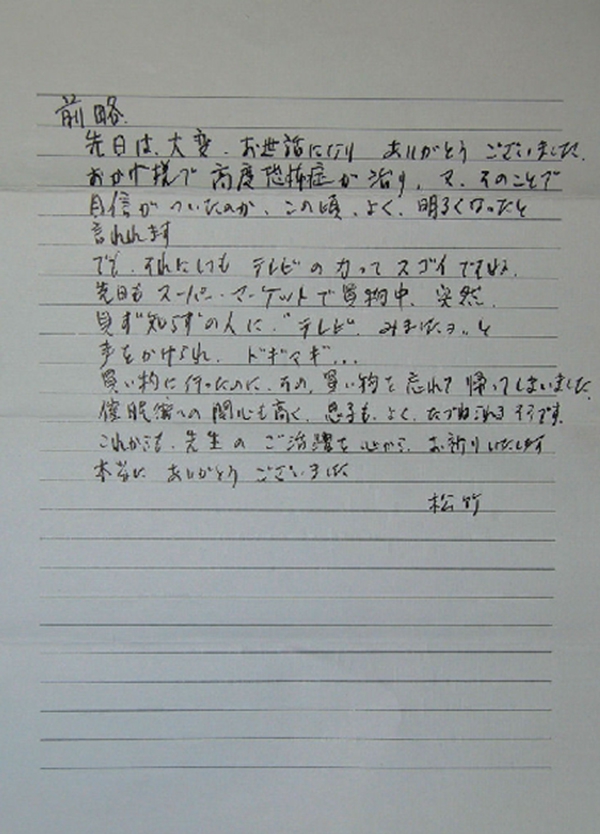 前略
先日は、大変、お世話になり ありがとう ございました。
おかげ様で 高度恐怖症が 治り、又、そのことで
自信が ついたのか、この頃、よく、明るくなったと
言われます
でも、それにしても テレビの力って スゴイですね。
先日も スーパー・マーケットで買物中、突然、
見ず知らずの人に、"テレビ" みましたョ。と
声をかけられ、ドギマギ...
買い物に行ったのに、その、買い物を忘れて 帰ってしまいました。
催眠術への 関心も高く、息子も、よく、たずねられるそうです。
これからも、先生の ご活躍を 心から、お祈りいたします
本当に ありがとう ございました
松竹